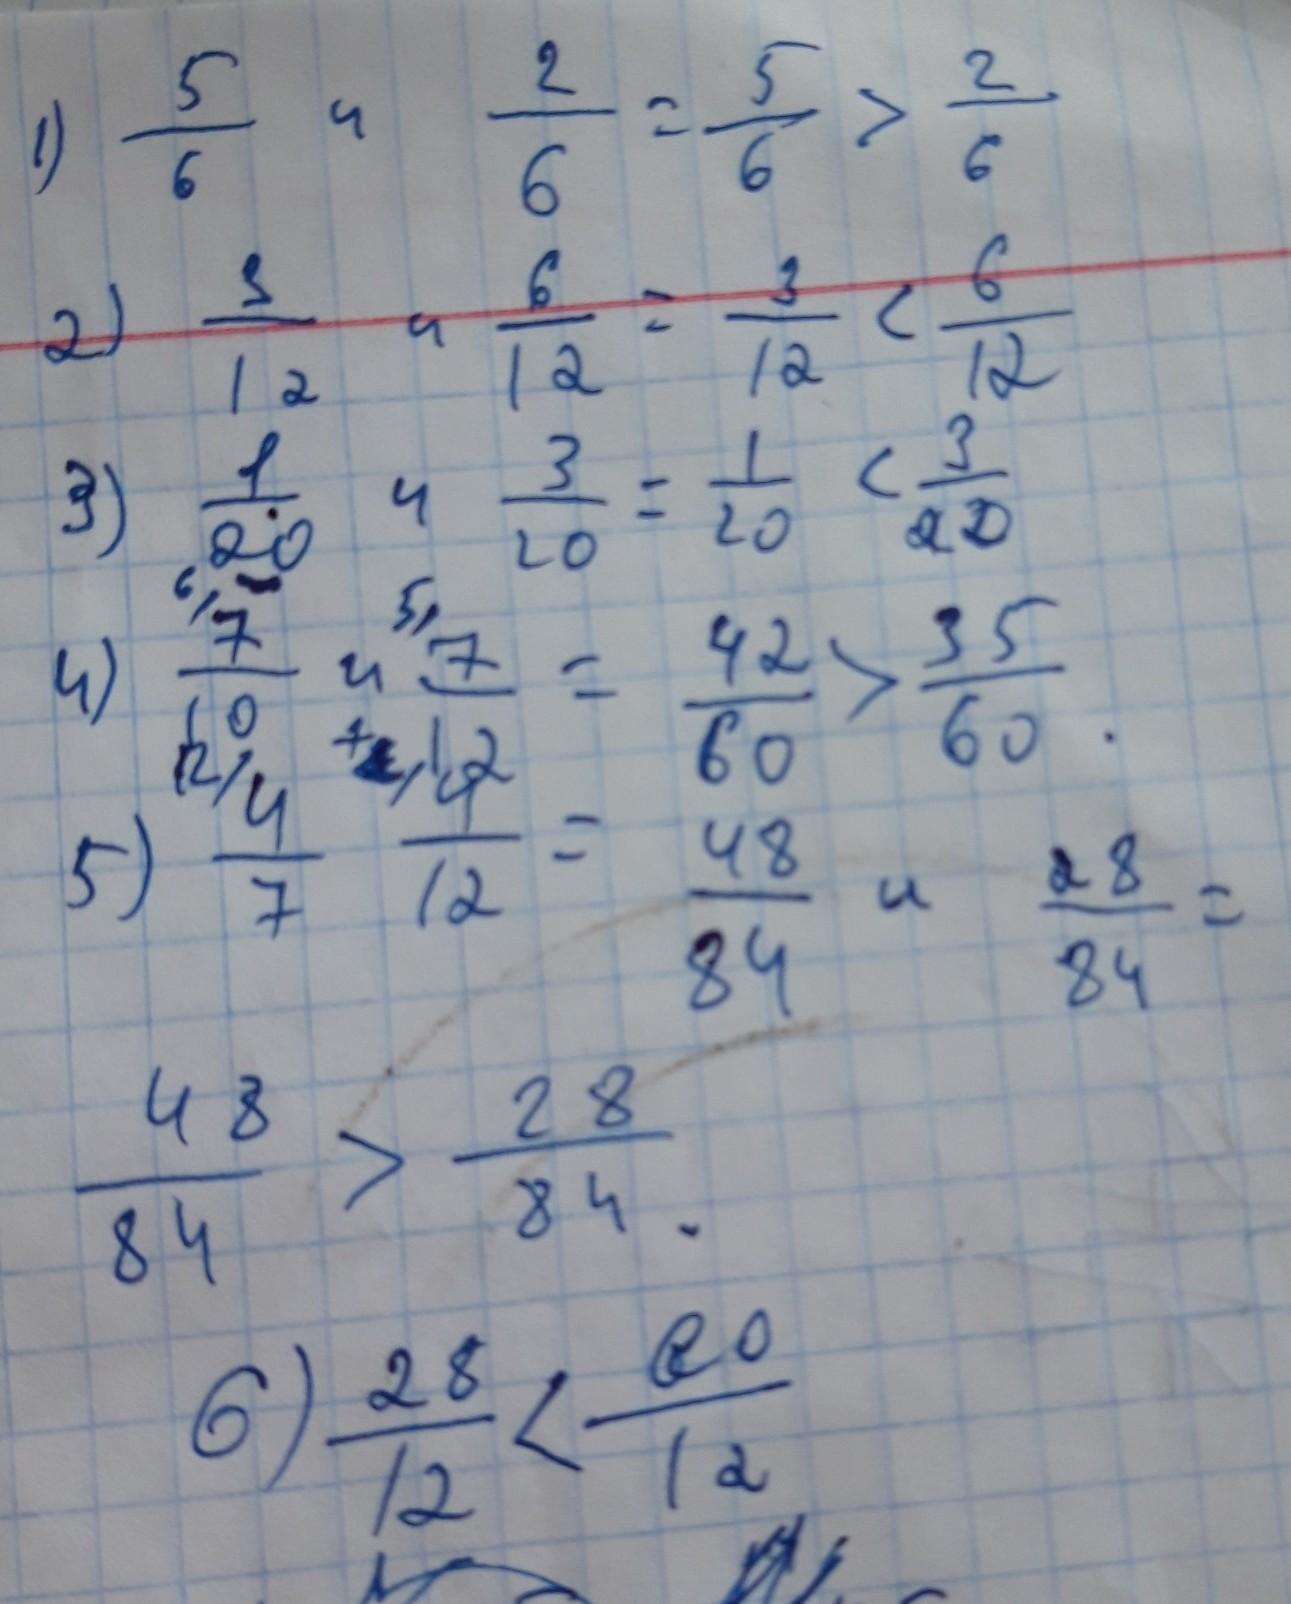 1) 5/6 и 2/6 = 5/6 > 2/6
2) 3/12 и 6/12 = 3/12 < 6/12
3) 1/20 и 3/20 = 1/20 < 3/20
6, 5,
4) 7/10 и 7/12 = 42/60 > 35/60.
12, 7,
5) 4/7 4/12 = 48/84 и 28/84 =
48/84 > 28/84.
6) 28/12 < /12